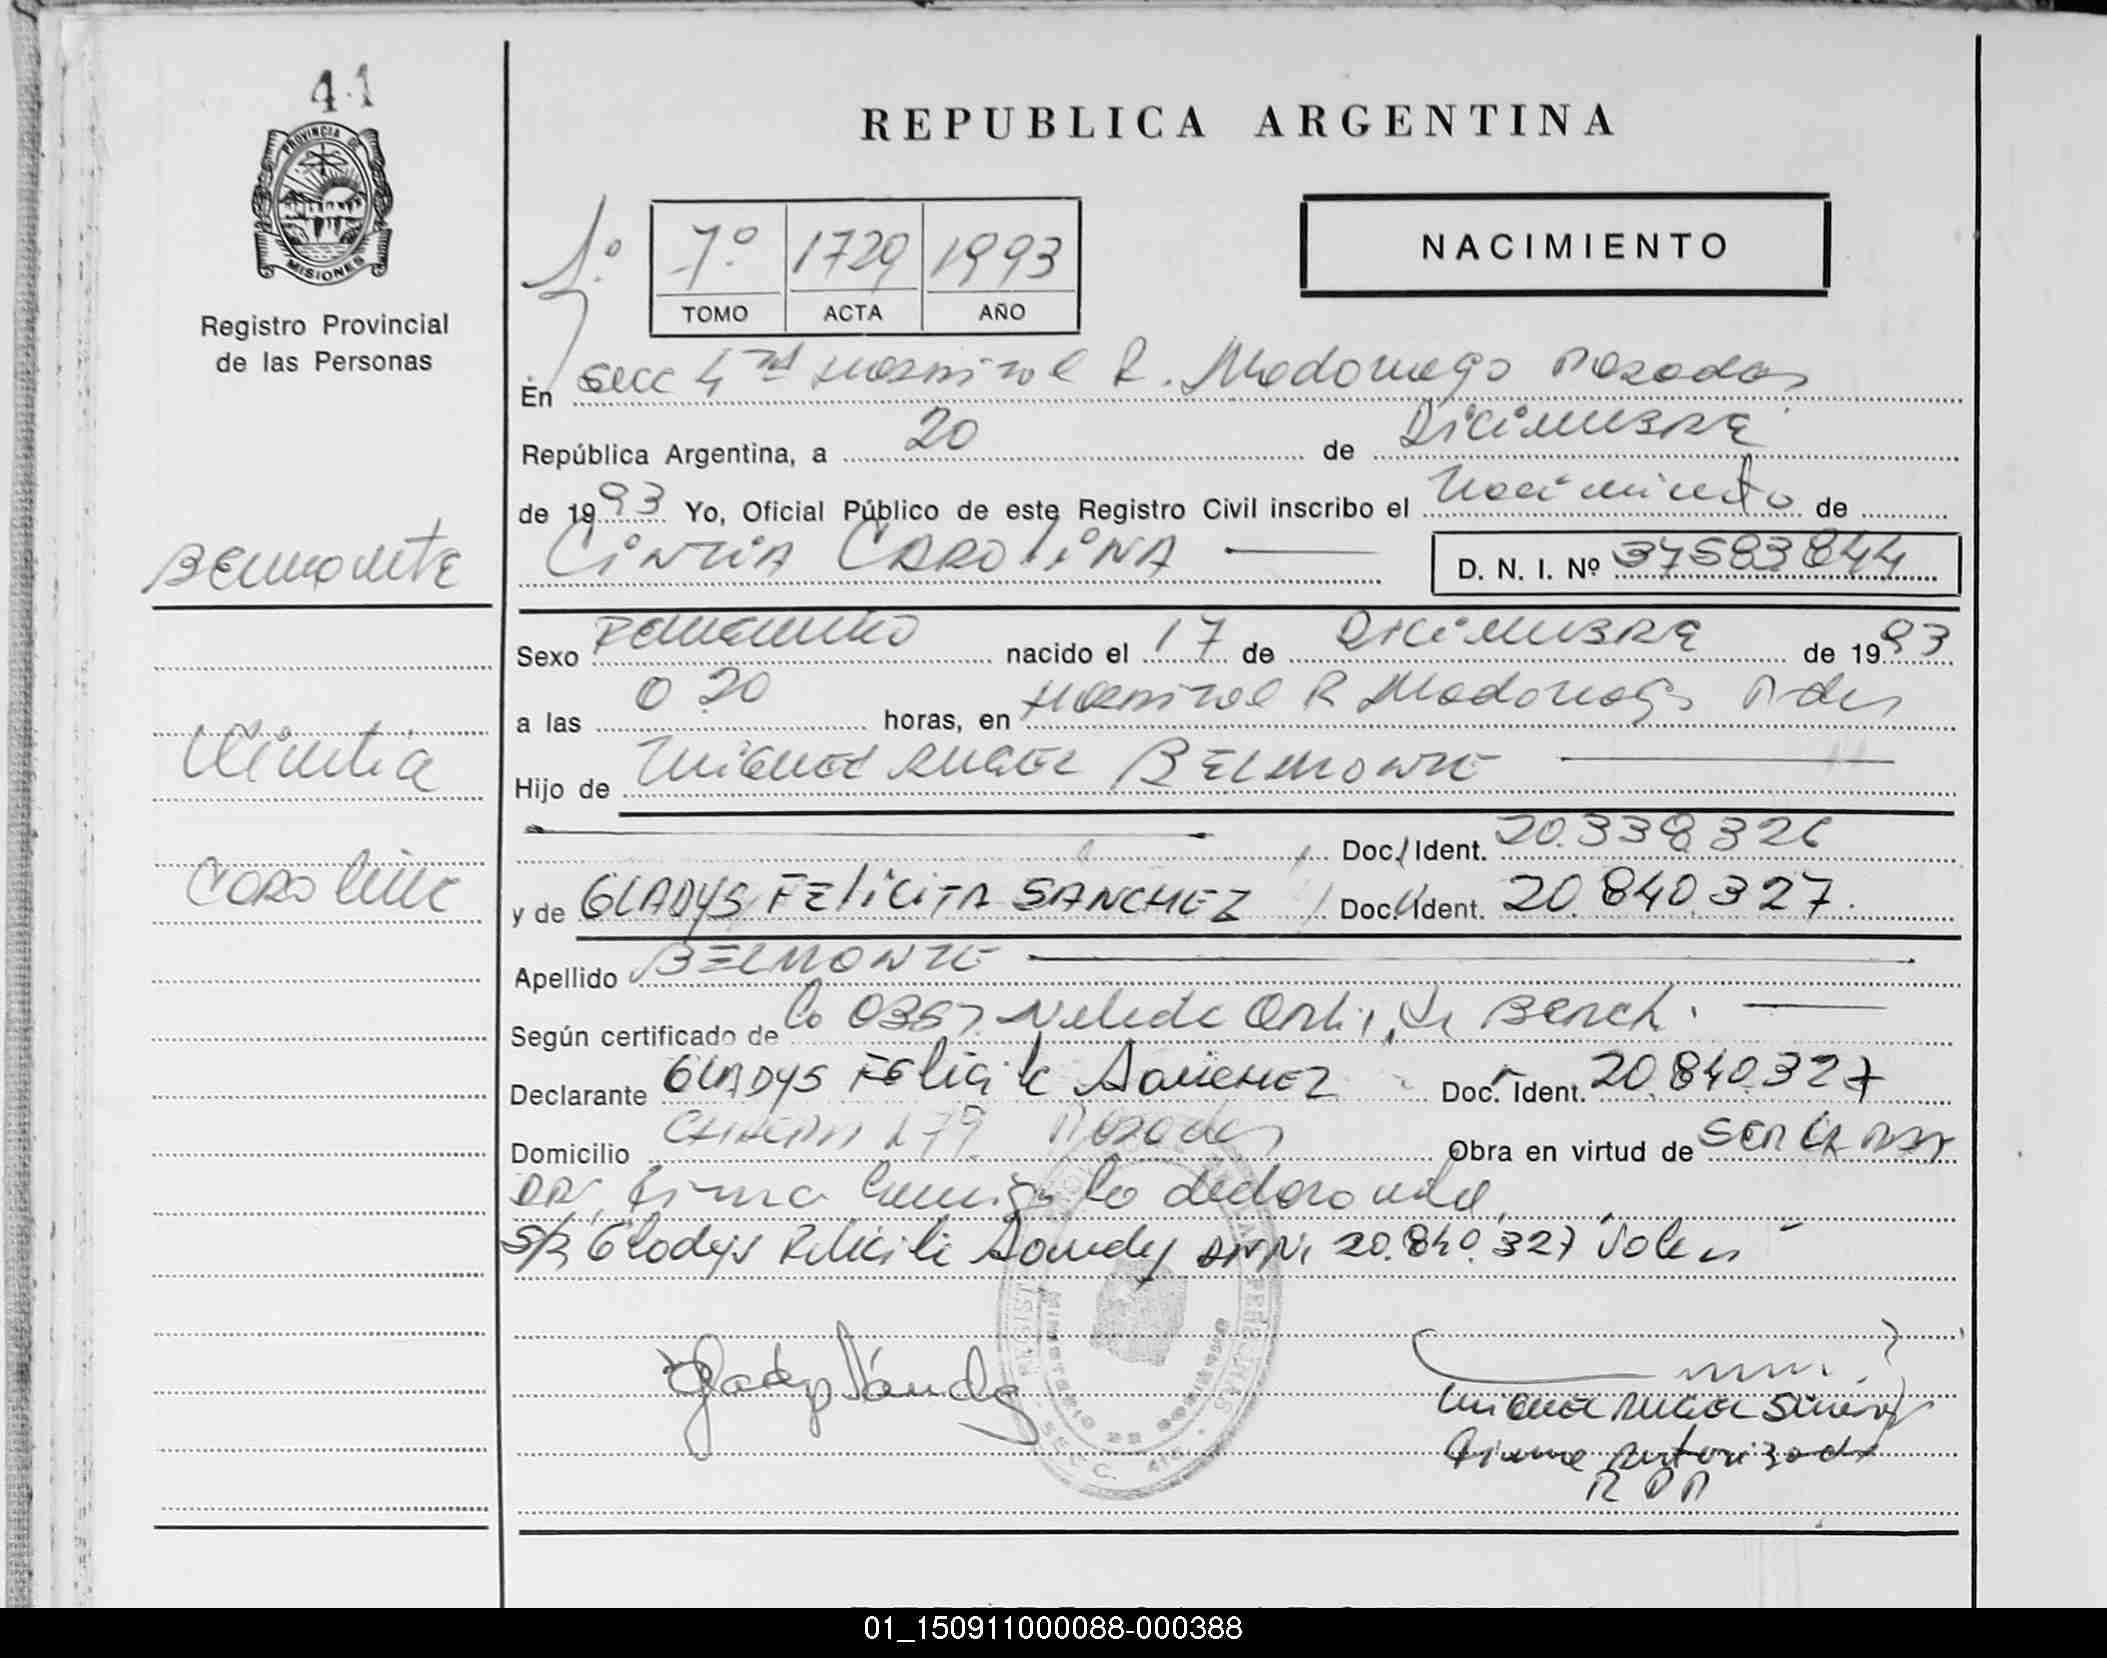 41
PROVINCIA DE
MISIONES
Registro Provincial
de las Personas
REPUBLICA ARGENTINA
1º
7º 1729 1993
TOMO ACTA AÑO
NACIMIENTO
En Secc 4ta Hospital R. Madariaga Posadas
República Argentina, a 20 de Diciembre
de 1993 Yo, Oficial Público de este Registro Civil inscribo el Nacimiento de
Belmonte
CINTIA CAROLINA D. N. I. Nº 37583844
Sexo Femenino nacido el 17 de Diciembre de 1993
a las 0 20 horas, en Hospital R Madariaga Pdas
Cintia
Hijo de MIGUEL ANGEL BELMONTE
Doc. Ident. 20.338.326
Carolina
y de GLADYS FELICITA SANCHEZ Doc. Ident. 20.840.327.
Apellido BELMONTE
Según certificado de Co 0357
Declarante GLADYS Felicita Sanchez Doc. Ident. 20.840.327
Domicilio 179 Posadas Obra en virtud de
firma la declarante
S/R Gladys Felicita Sanchez DNI 20.840.327 Vale
Gladys Sánchez
MINISTERIO DE GOBIERNO
SECC. 4ta
Miguel Angel
Firma Autorizada
RPP
01_150911000088-000388